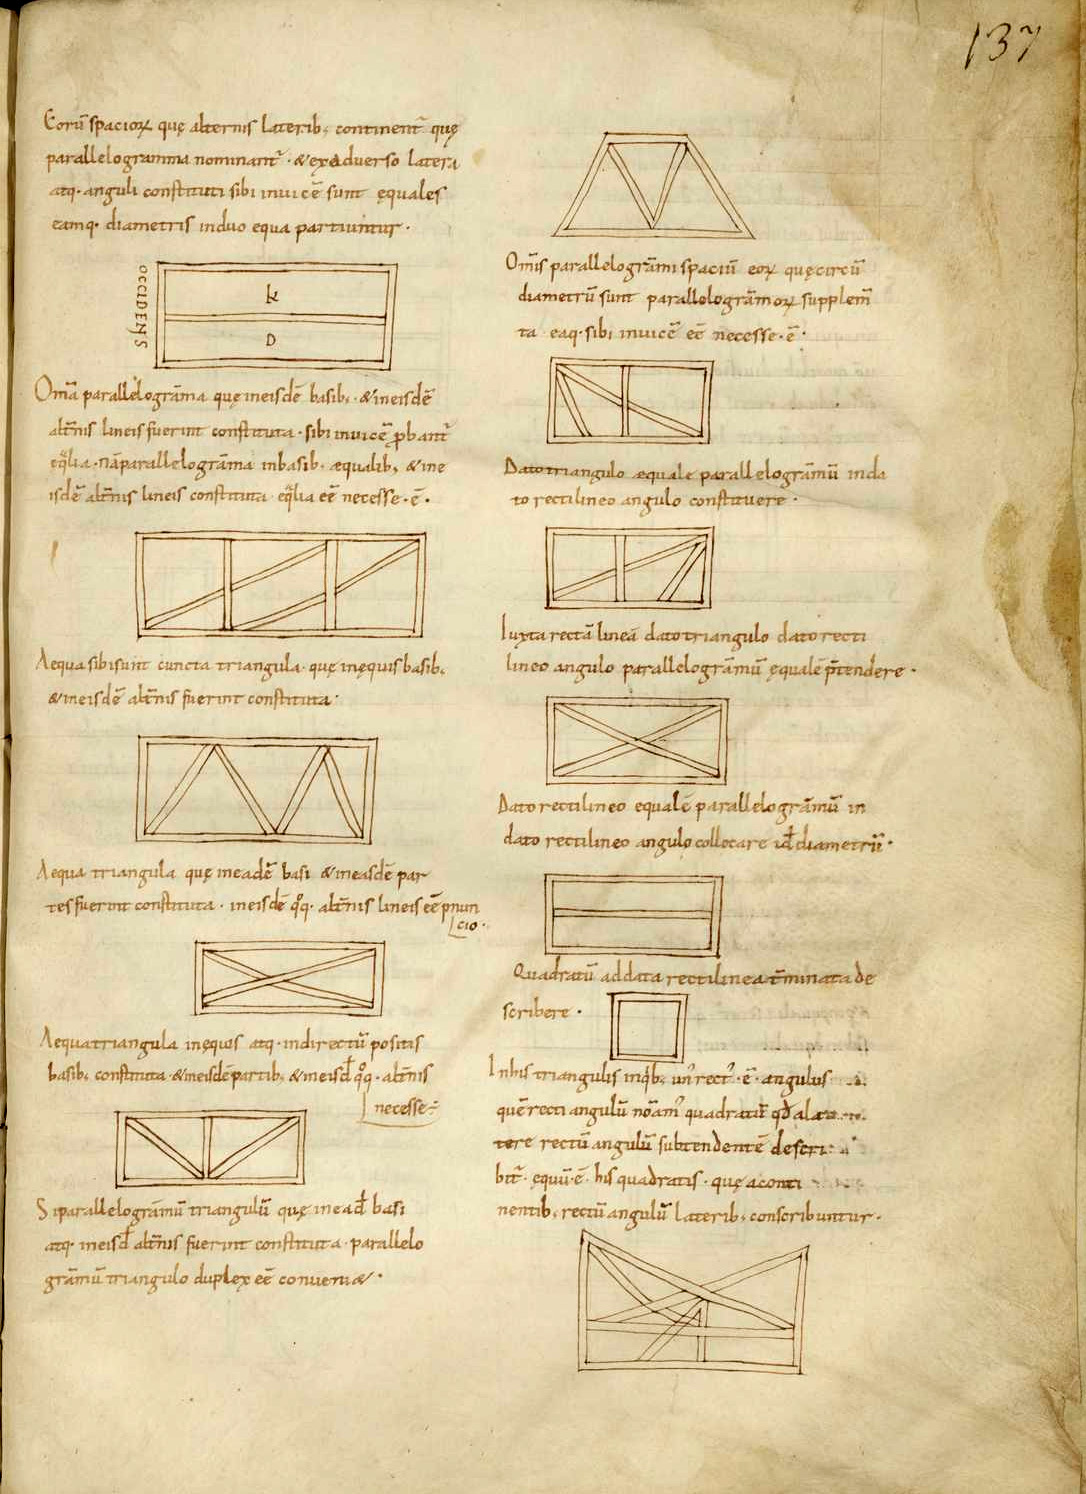 137
Eorū spaciorꝝ quę alternis laterib; continent᷑ quę
parallelogramma nominant᷑ · & ex aduerso latera
atq· anguli constituti sibi inuicē sunt ęquales
eamq· diametris in duo equa partiuntur ·
OCCIDENS
k
D
Om̄a parallelogrāma quę in eisdē basib; · & in eisdē
alt̄nis lineis fuerint constituta · sibi inuicē ꝓbant᷑
eq̄lia · nā parallelogrāma in basib· aequalib; & in e
isdē alt̄nis lineis constituta eq̄lia eē necesse · ē ·
Aequa sibi sunt cuncta triangula · quę in ęquis basib;
& in eisdē alt̄nis fuerint constituta ·
Aequa triangula quę in eadē basi & in easdē par
tes fuerint constituta · in eisdē q̊q· alt̄nis lineis eē pnun
cio ·
Aequa triangula in ęquis atq· in directū positis
basib; constituta · & in eisdē partib; & in eisd̄ q̊q· alt̄nis
necesse ÷
Si parallelogrāmū triangulū quę in ead̄ basi
atq· in eisd̄ alt̄nis fuerint constituta · parallelo
grāmū triangulo duplex eē conueni& ·
Om̄is parallelogrāmi spaciū eorꝝ quę circū
diametrū sunt parallelogrāmorꝝ supplem̄
ta eaq· sibi inuicē eē necesse · ē ·
Dato triangulo aequale parallelogrāmū in da
to rectilineo angulo constituere ·
Iuxta rectā lineā dato triangulo dato recti
lineo angulo parallelogrāmū ęqualē p̄tendere ·
Dato rectilineo equalē parallelogrāmū in
dato rectilineo angulo collocare id̄ diametrū ·
Quadratū ad data recti linea t̄minata de
scribere ·
In his triangulis in q̇b; un᷒ rect᷒ · ē · angulus
quē recti angulū noāam᷒ quadratū qd̄ a la
tere rectū angulū subtendentē descri
bit᷑ · ęquū · ē · his quadratis · quę a conti
nentib; rectū angulū laterib; conscribuntur ·